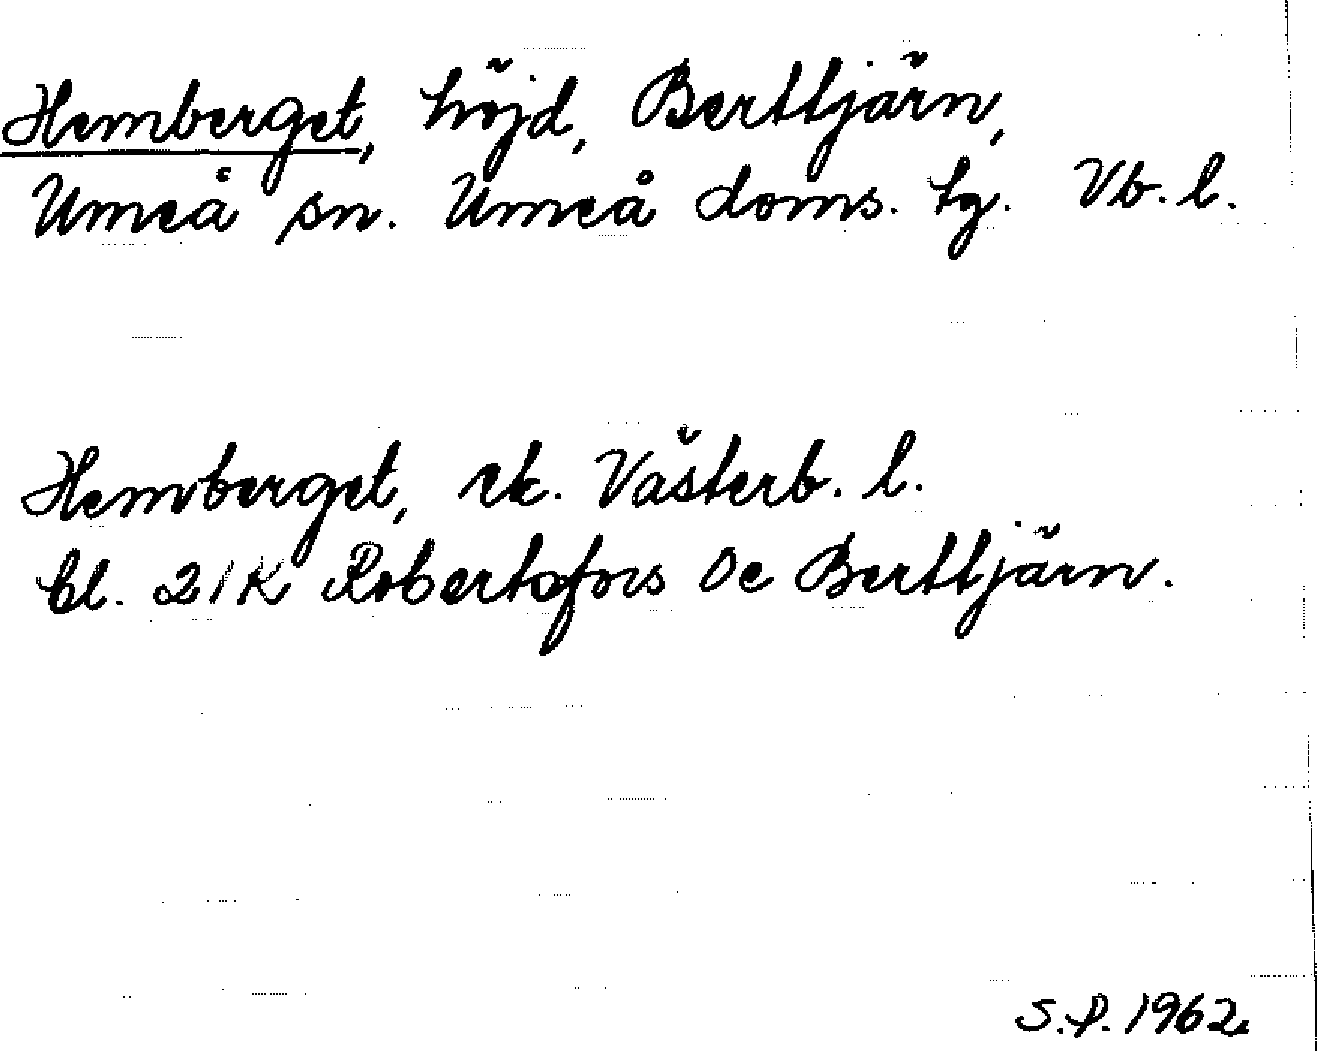 Hemberget, höjd, Berttjärn,
Umeå sn. Umeå doms. tg. Vb. l.
Hemberget, ek. Västerb. l.
bl. 21K Robertsfors 0e Berttjärn.
S.P. 1962